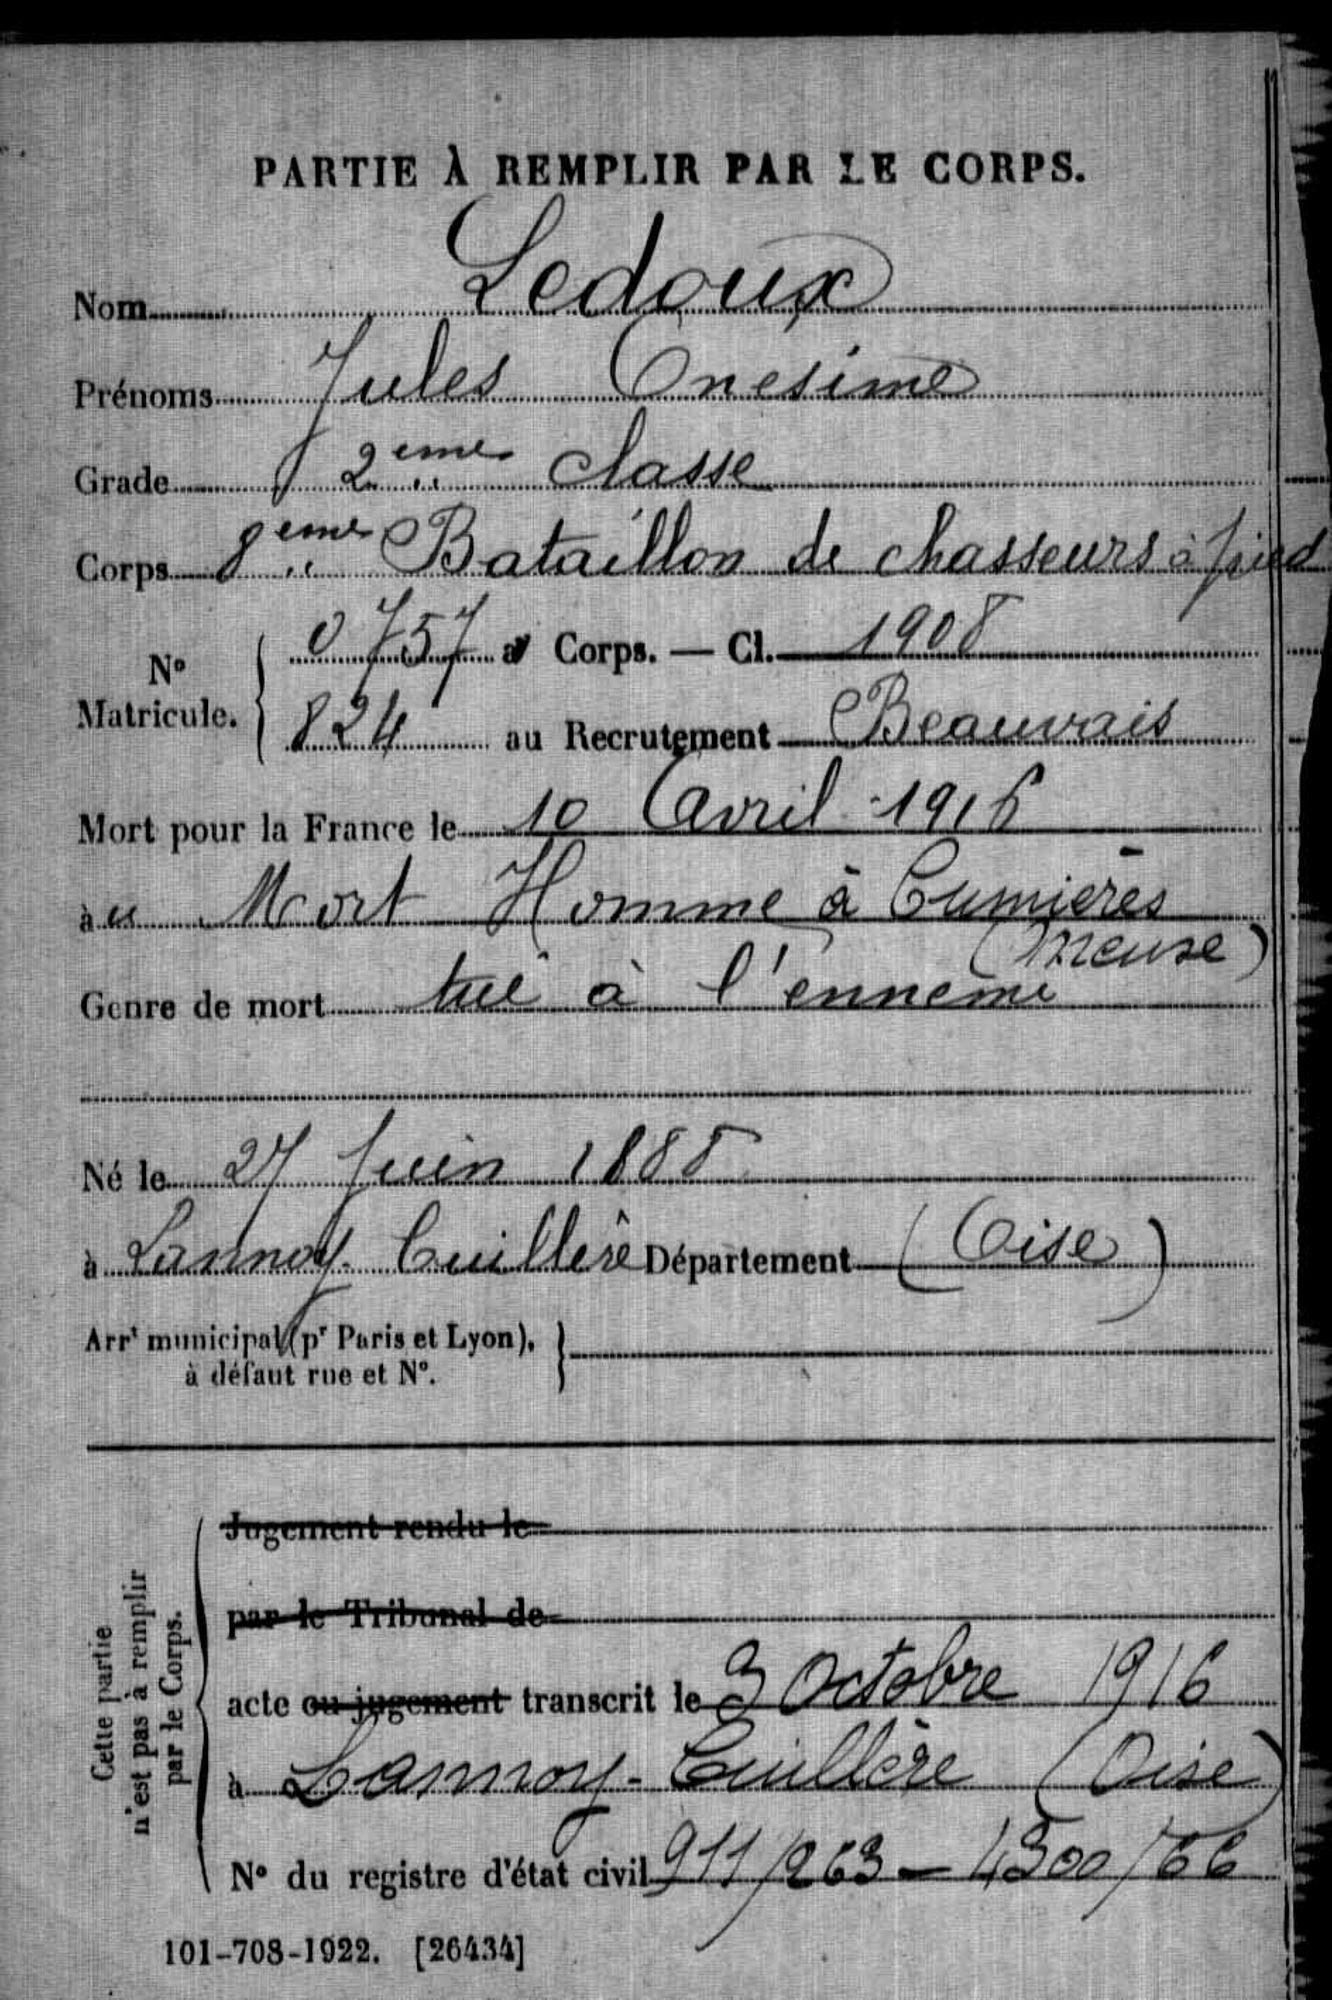 PARTIE À REMPLIR PAR LE CORPS.
Nom Ledoux
Prénoms Jules Onesime
Grade 2ème classe
Corps 8ème Bataillon de chasseurs à pied
N° Matricule. { 0757 au Corps. — Cl. 1908
824 au Recrutement Beauvais
Mort pour la France le 10 Avril 1916
àu Mort Homme à Cumières
(Meuse)
Genre de mort tué à l'ennemi
Né le 27 Juin 1888
à Lannoy-Cuillère Département (Oise)
Arrt municipal (pr Paris et Lyon),
à défaut rue et N°.
Cette partie
n'est pas à remplir
par le Corps.
Jugement rendu le
par le Tribunal de
acte ou jugement transcrit le 3 Octobre 1916
à Lannoy-Cuillère (Oise)
N° du registre d'état civil 911/263 –
101-708-1922. [26434]